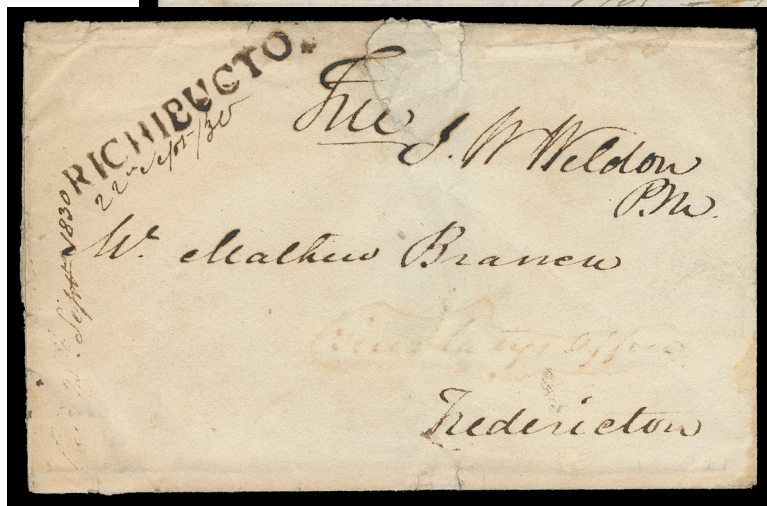 RICHIBUCTO.
22 Sept /30
Free
J. W Weldon
PM.
Sept 1830
Mr. Mathew Brannen
Office
Fredericton